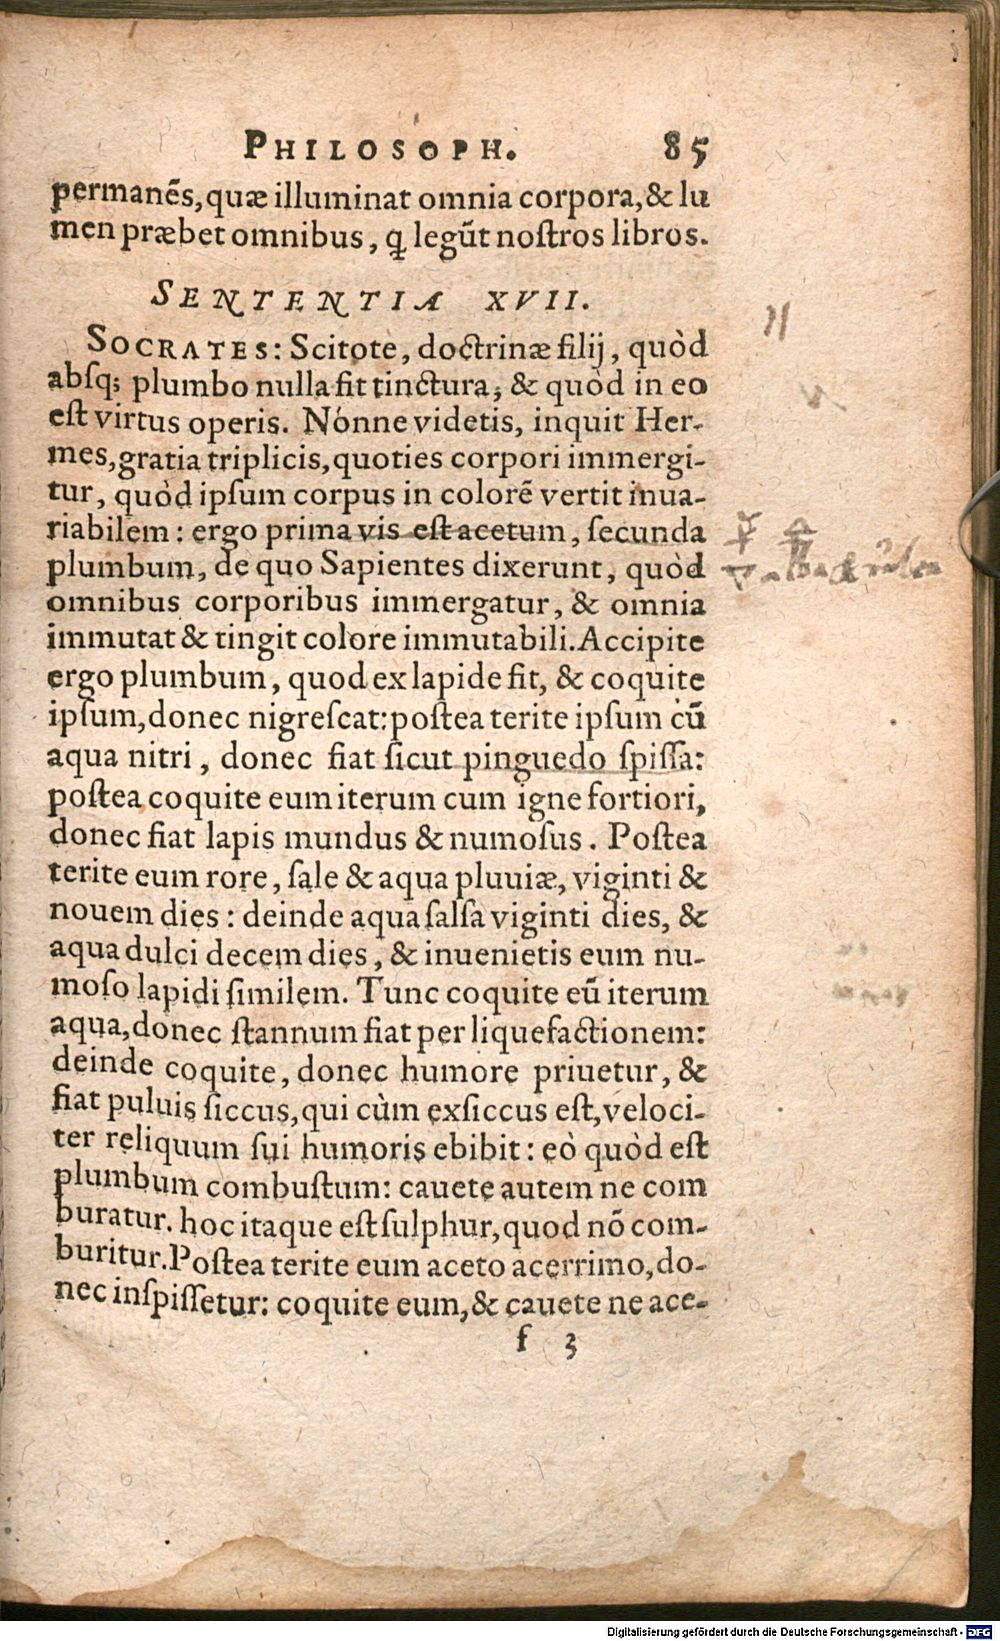 PHILOSOPH. 85
permanẽs, quæ illuminat omnia corpora, & lu
men præbet omnibus, ꝗ legũt noſtros libros.
SENTENTIA XVII.
SOCRATES: Scitote, doctrinæ filij, quòd
abſq; plumbo nulla fit tinctura, & quòd in eo
eſt virtus operis. Nónne videtis, inquit Her-
mes, gratia triplicis, quoties corpori immergi-
tur, quòd ipſum corpus in colorẽ vertit inua-
riabilem: ergo prima vis eſt acetum, ſecunda
plumbum, de quo Sapientes dixerunt, quòd
omnibus corporibus immergatur, & omnia
immutat & tingit colore immutabili. Accipite
ergo plumbum, quod ex lapide fit, & coquite
ipſum, donec nigreſcat: poſtea terite ipſum cũ
aqua nitri, donec fiat ſicut pinguedo ſpiſſa:
poſtea coquite eum iterum cum igne fortiori,
donec fiat lapis mundus & numoſus. Poſtea
terite eum rore, ſale & aqua pluuiæ, viginti &
nouem dies: deinde aqua ſalſa viginti dies, &
aqua dulci decem dies, & inuenietis eum nu-
moſo lapidi ſimilem. Tunc coquite eũ iterum
aqua, donec ſtannum fiat per liquefactionem:
deinde coquite, donec humore priuetur, &
fiat puluis ſiccus, qui cùm exſiccus eſt, veloci-
ter reliquum ſui humoris ebibit: eò quòd eſt
plumbum combuſtum: cauete autem ne com
buratur. hoc itaque eſt ſulphur, quod nõ com-
buritur. Poſtea terite eum aceto acerrimo, do-
nec inſpiſſetur: coquite eum, & cauete ne ace-
f 3
Digitalisierung gefördert durch die Deutsche Forschungsgemeinschaft - DFG